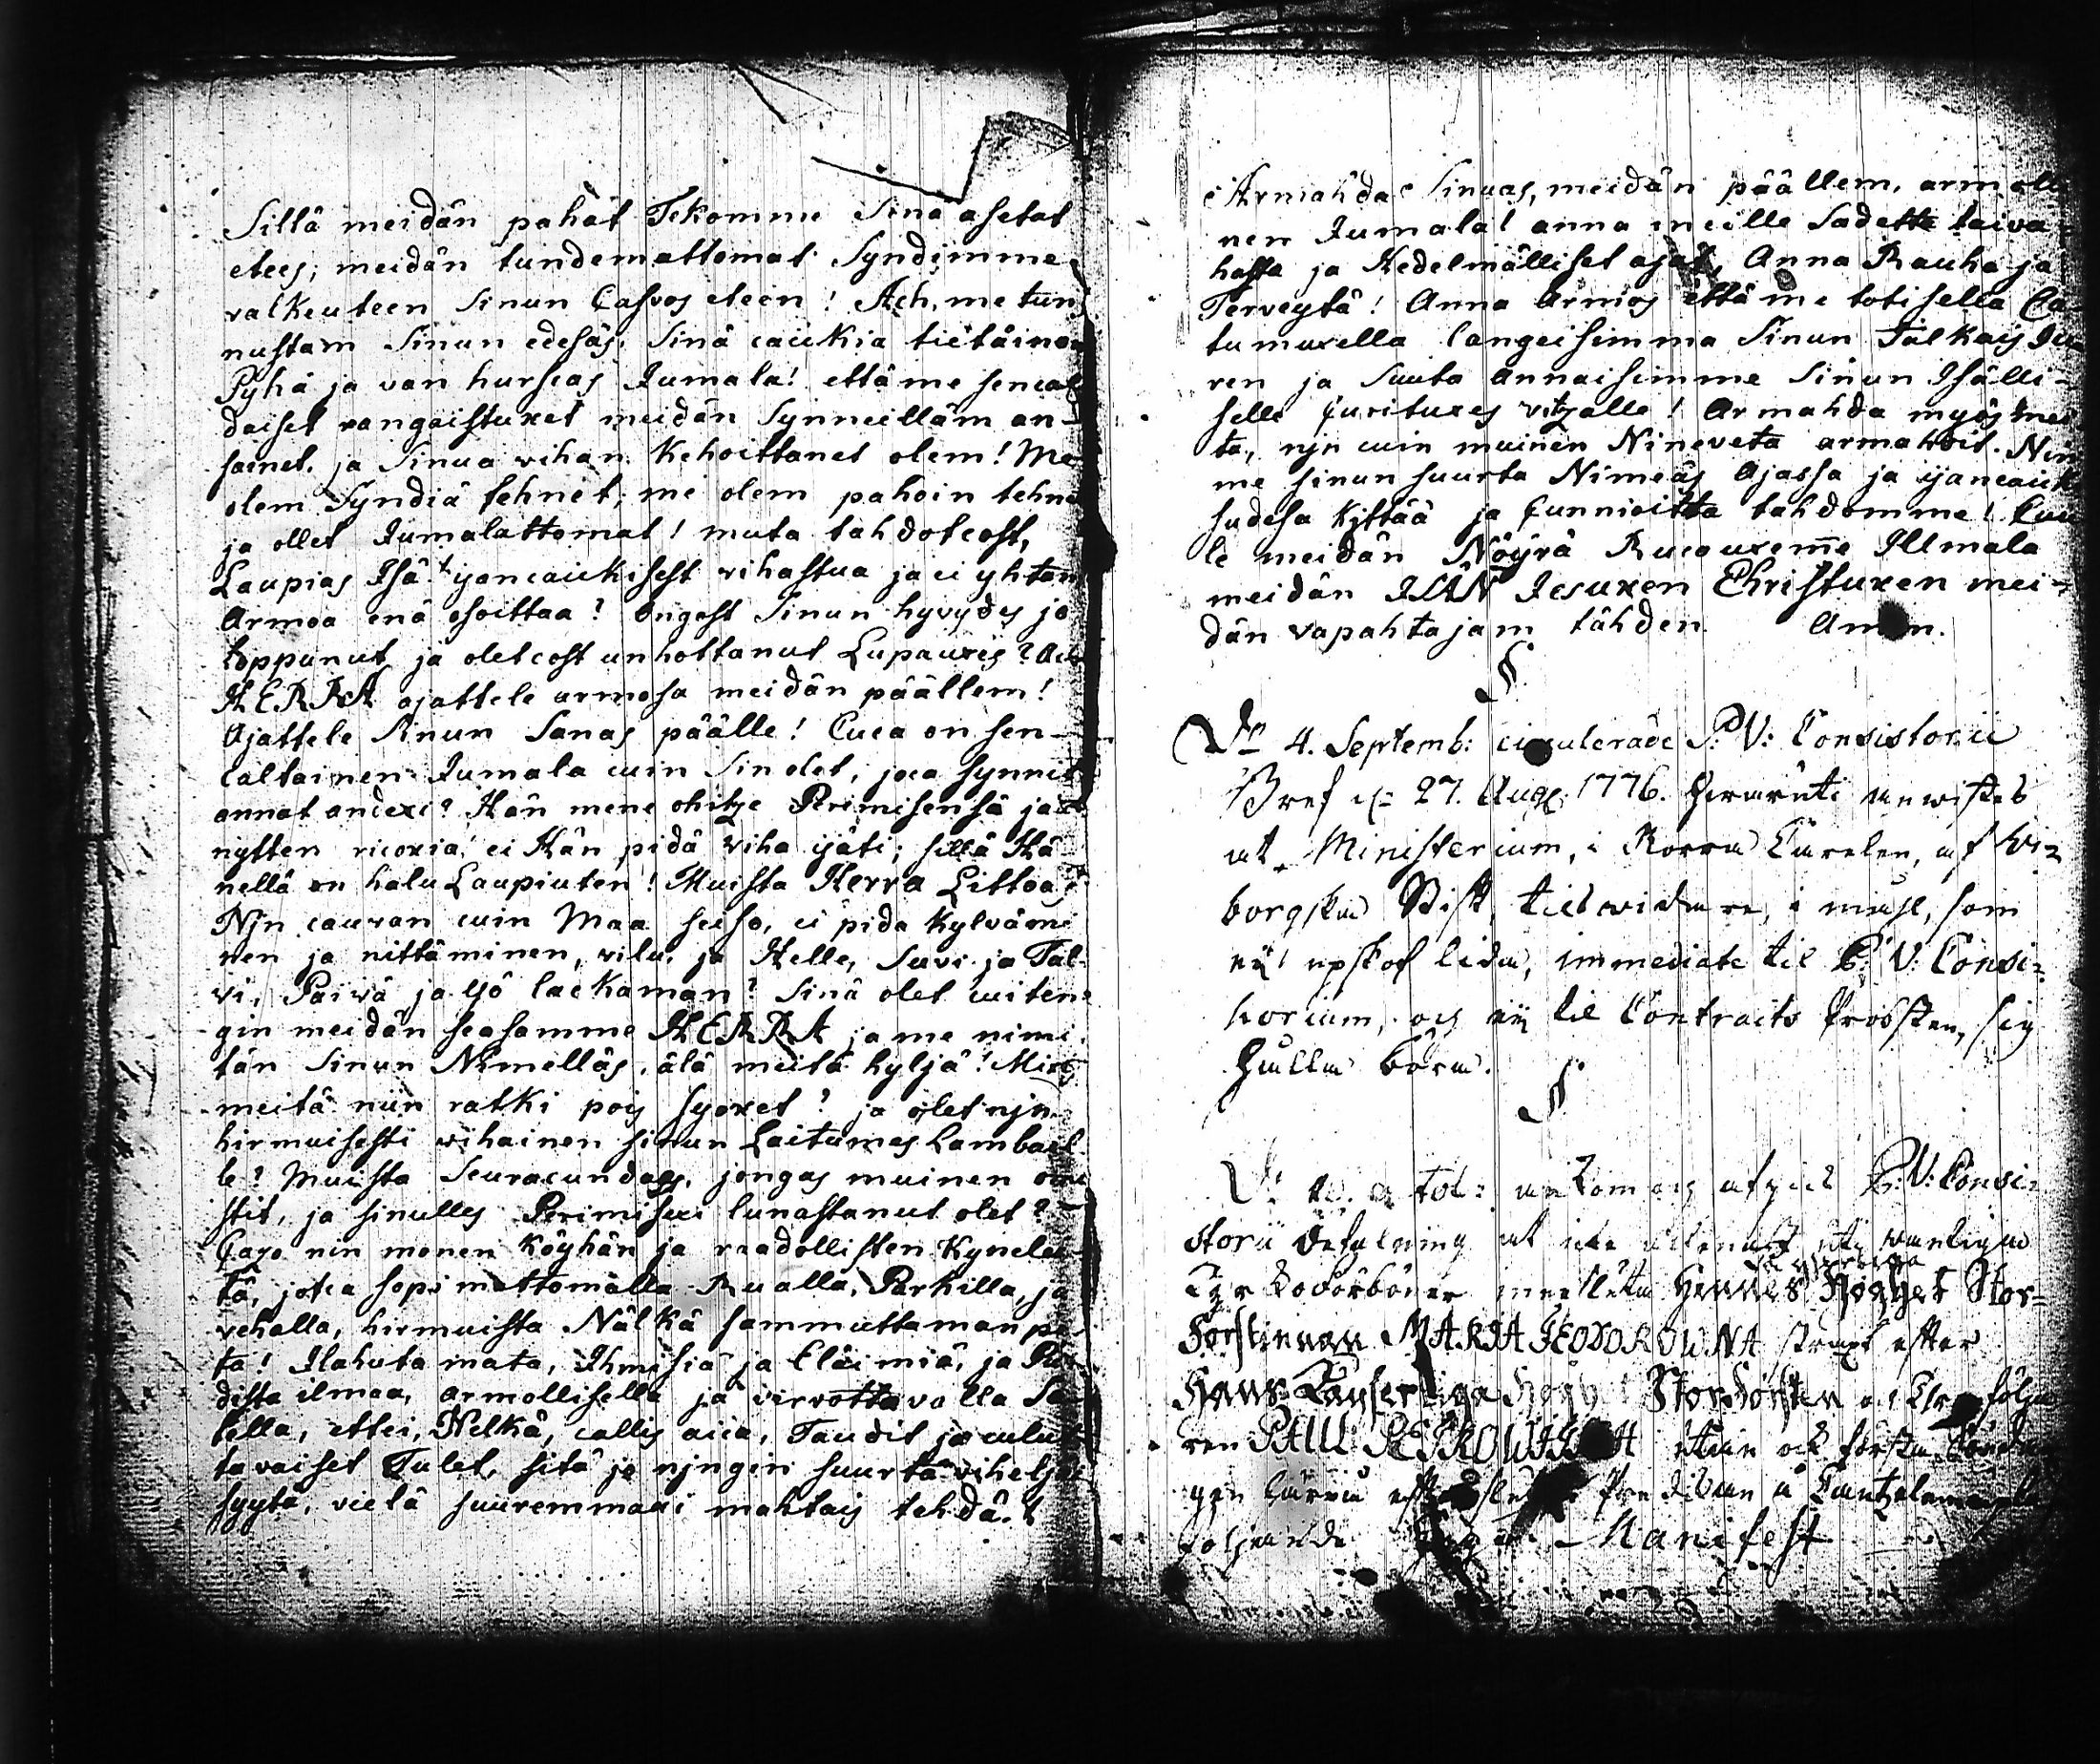 Sillä meidän pahat Tekomme Sinä asetat
etees; meidän tundemattomat Syndimme
valkeuteen Sinun Casvos eteen! Ach, me tun¬
nustam Sinun edesäs. Sinä caickia tietäinen
Pyhä ja van hurscas Jumala! että me sencal
daiset rangaistuxet meidän Synneilläm an¬
sainet, ja Sinua vihan Kehoittanet olem! Me
olem Syndiä tehnet; me olem pahoin tehne
ja ollet Jumalattomat! muta tahdotcost,
Laupias Isä! yancaickisest vihastua ja ei yhtän
Armoa enä osoittaa? Ongost Sinun hyvydes jo
loppunut, ja oletcost unhottanut Lupauxes? Ach
HERRA ajattele armosa meidän päällem!
Ajattele Sinun Sanas päälle! Cuca on sen¬
caltainen Jumala cuin Sin olet, joca synnit
annat andexi? Hän mene ohitze Perimisensä jä
nytten ricoxia; ei Hän pidä viha ijäti; sillä Hä
nellä on halu Laupiuten! Muista Herra Littoas
Nijn cauvan cuin Maa seiso, ei pidä Kylvämi
nen ja nittäminen, vilu, ja Helle, Suvi ja Tal¬
vi, Päivä ja Yö lackaman? Sinä olet cuiten¬
gin meidän seasamme HERRA ja me nimi¬
tän Sinun Nimelläs, älä meitä hyljä! Mixi
meitä niin ratki pois syöxet? ja olet nijn
hirmuisesti vihainen sinun Laitumes Lambail
le? Muista Seuracundas, jongas muinen omi
stit, ja sinulles Perimisexi lunastanut olet?
Cazo nin monen Köyhän ja raadollisten Kynelei
tä, jotca sopimattomalla Rualla, Parkilla, ja
vehalla, hirmuista Nälkä sammuttaman pi
tä! Ilahuta maata, Ihmisiä ja Eläimiä, ja Puh
dista ilmaa, armollisella ja virvottavalla Sa
tella, ettei, Nelkä, callis aica, Taudit ja culut
tavaiset Tulet, sitä jo nijngin suurta viheljäi
syytä, vielä suuremmaxi mahtais tehdä.
Armahda Sinuas, meidän päällem, armolli
nen Jumala! anna meille Sadetta taiva¬
hasta ja Hedelmälliset ajat, Anna Rauha ja
Terveytä! Anna Armos että me totisella Ca
tumuxella langeisimma Sinun Jalkais Ju
ren ja Suuta annaisimme Sinun Isälli¬
selle Curituxes vitzalle! Armahda myös mei
tä, nijn cuin muinen Niniveta armahdit. Nin
me sinun suurta Nimeäs Ajassa ja ijancaick
sudesa Kijttää ja Cunnioitta tahdomme! Cuu
le meidän Nöyrä Rucouxeme Illmala
meidän HERRAN Jesuxen Christuxen mei¬
dän vapahtajam tähden. Amen.
§
Dn 4. Septemb: circulerade P: V: Consistorii
Bref af 27. Aug: 1776.
at Ministerium, i Norra Carelen, af Wi¬
borgska Stift, tils vidare, i mål, som
ej upskof lida, immediate til P: V: Consi¬
storium, och ej til Contracts Prosten, sig
hålla böra.
§
ankom och afgick P: V: Consi¬
storii befalning at icke allenast uti vanliga
Kyrkoböner innesluta Hennes Höghet Stor¬
Förstinnan MARIA FEODOROWNA strax efter
Hans Kejserliga Höghet StorFörsten och Thronfölja
ren PAUL PETROWITSCH utan ock första Sönda
gen härnäst efter slutad Predikan å Cantzelen upläsa
följande Manifest